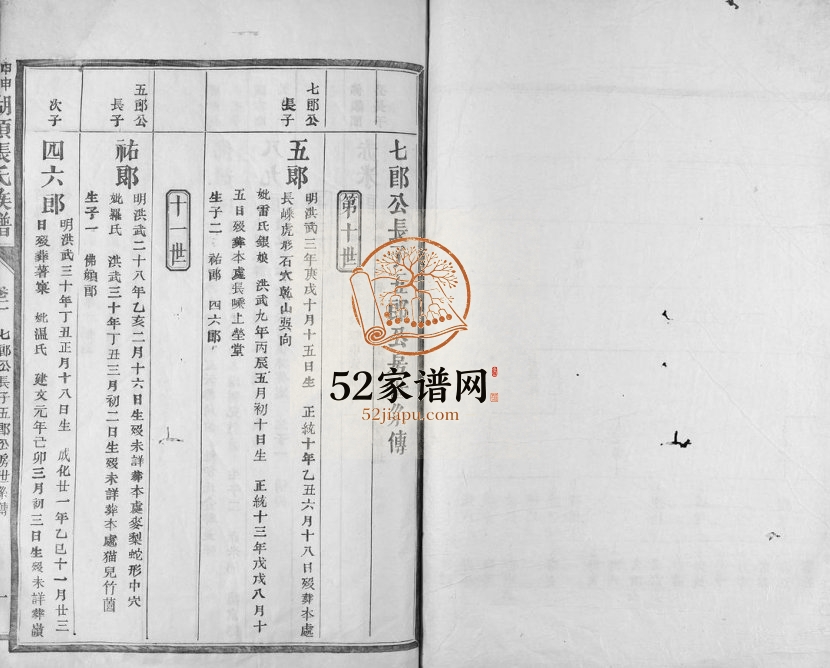 七郎公長子五郎公房世系傳
第十世
七郎公
長子
五郎
明洪武三年庚戌十月十五日生 正統十年乙丑六月十八日歿葬本處
長嵊虎形石穴乾山巽向
妣雷氏銀娘 洪武九年丙辰五月初十日生 正統十三年戊戌八月十
五日歿葬本處長嵊上塋堂
生子二 祐郎 四六郎
十一世
五郎公
長子
祐郎
明洪武二十八年乙亥二月十六日生歿未詳葬本處麥梨蛇形中穴
妣羅氏 洪武三十年丁丑三月初二日生歿未詳葬本處猫兒竹𦶜
生子一 佛緣郎
次子
四六郎
明洪武三十年丁丑正月十八日生 成化廿一年乙巳十一月廿三
日歿葬薯寮 妣溫氏 建文元年己卯三月初三日生歿未詳葬嶺
湖頭張氏族譜
卷二 七郎公長子五郎公房世系傳 一
52家谱网
52jiapu.com